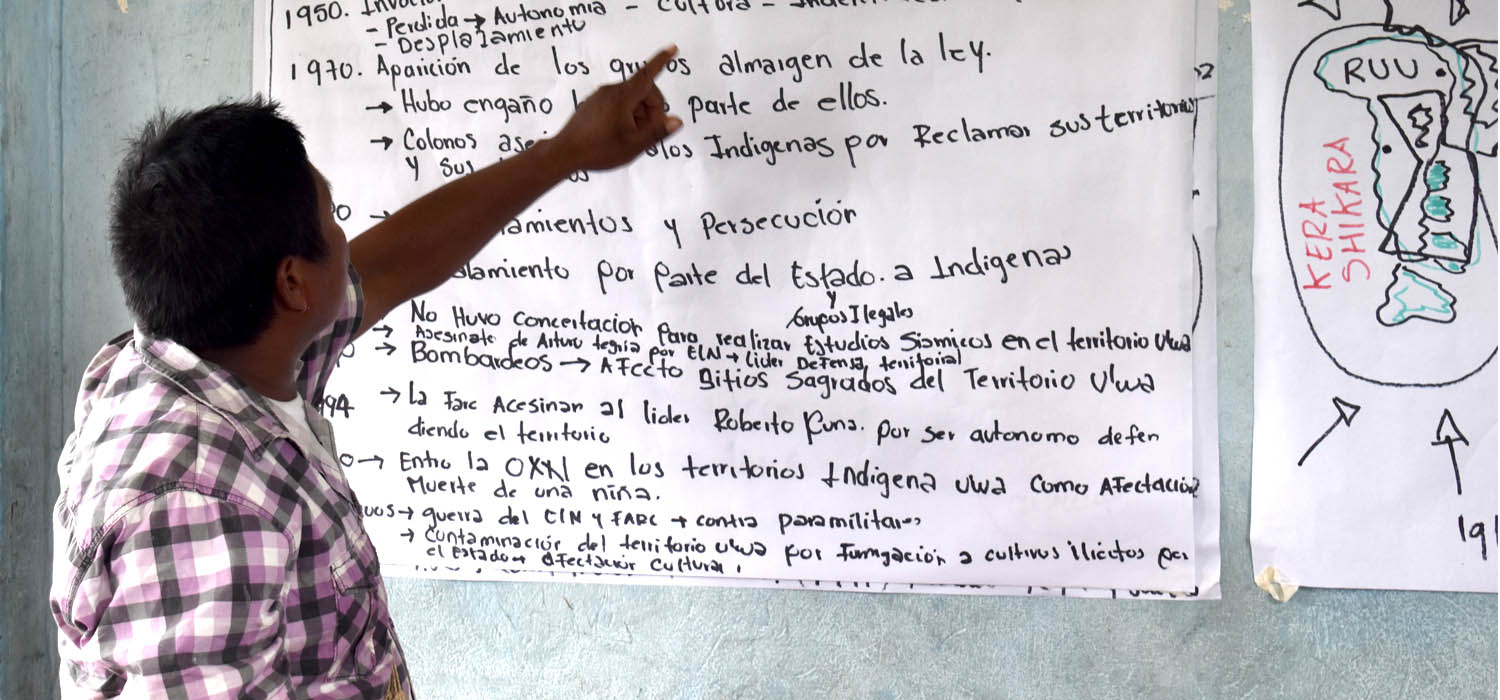 1950.
- Perdida → Autonomia - Cultura -
- Desplazamiento
1970. Aparición de los grupos almargen de la ley.
→ Hubo engaño parte de ellos.
→ Colonos los Indigenas por Reclamar sus territorios
y sus
amientos y Persecución
lamiento por Parte del Estado. a Indigenas
y
Grupos Ilegales
No Huvo Concertacion Para realizar Estudios Sismicos en el territorio Uwa
→ Asesinato de Arturo tegria por ELN → Lider Defensa territorial
→ Bombardeos → Afecto Sitios Sagrados del Territorio U'wa
994 → La Farc Acesinan al lider Roberto por ser autonomo defen
diendo el territorio
0 → Entro la OXXI en los territorios Indigena uwa como Afectación
Muerte de una niña.
uos → guerra del ELN y FARC → contra paramilitares
→ Contaminación del territorio uwa por Fumgación a cultivos ilicitos por
el Estado → Afectación Cultural.
RUU
KERA
SHIKARA
19